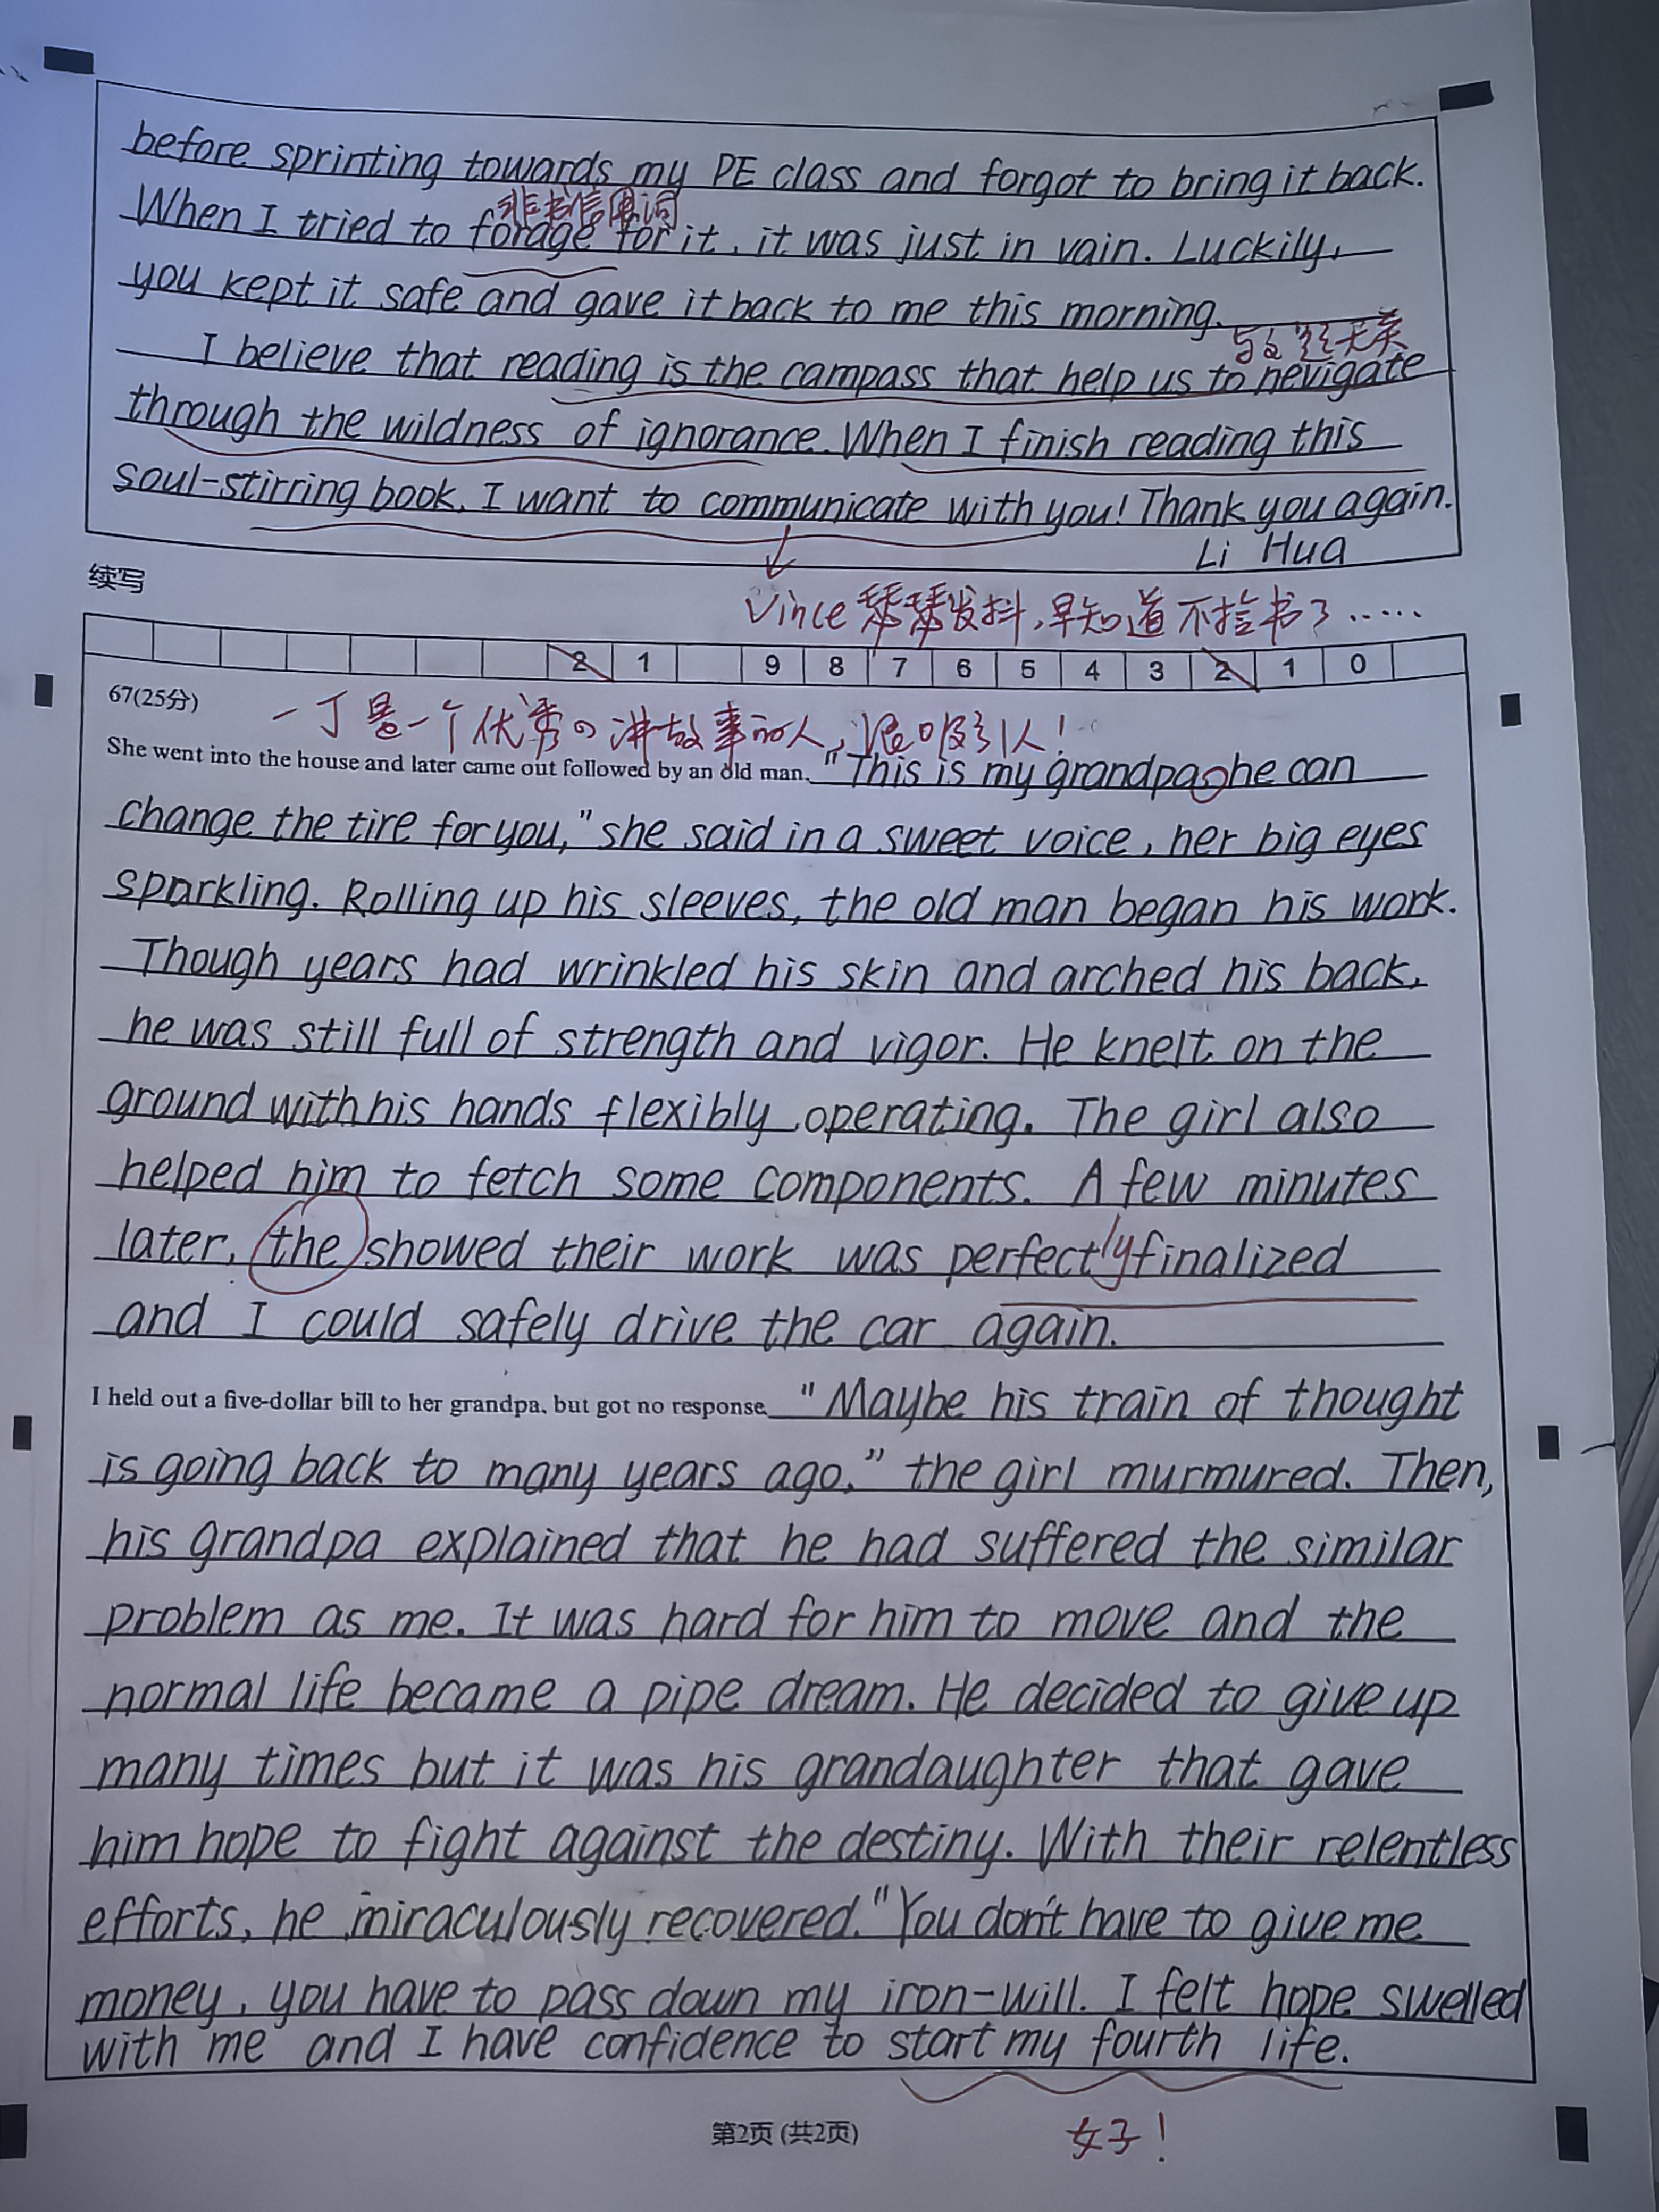 before sprinting towards my PE class and forgot to bring it back.
非书信用词
When I tried to forage for it, it was just in vain. Luckily,
you kept it safe and gave it back to me this morning.
与文题无关
I believe that reading is the campass that help us to nevigate
through the wildness of ignorance. When I finish reading this
soul-stirring book, I want to communicate with you! Thank you again.
Li Hua
续写
Vince瑟瑟发抖,早知道不捡书了……
2 1 9 8 7 6 5 4 3 2 1 0
67(25分)
一丁是一个优秀的讲故事的人,很吸引人!
She went into the house and later came out followed by an old man. "This is my grandpa, he can
change the tire for you," she said in a sweet voice, her big eyes
sparkling. Rolling up his sleeves, the old man began his work.
Though years had wrinkled his skin and arched his back,
he was still full of strength and vigor. He knelt on the
ground with his hands flexibly operating. The girl also
helped him to fetch some components. A few minutes
later, the showed their work was perfectly finalized
and I could safely drive the car again.
I held out a five-dollar bill to her grandpa, but got no response. "Maybe his train of thought
is going back to many years ago," the girl murmured. Then,
his grandpa explained that he had suffered the similar
problem as me. It was hard for him to move and the
normal life became a pipe dream. He decided to give up
many times but it was his grandaughter that gave
him hope to fight against the destiny. With their relentless
efforts, he miraculously recovered. "You don't have to give me
money, you have to pass down my iron-will. I felt hope swelled
with me and I have confidence to start my fourth life.
第2页 (共2页)
好!